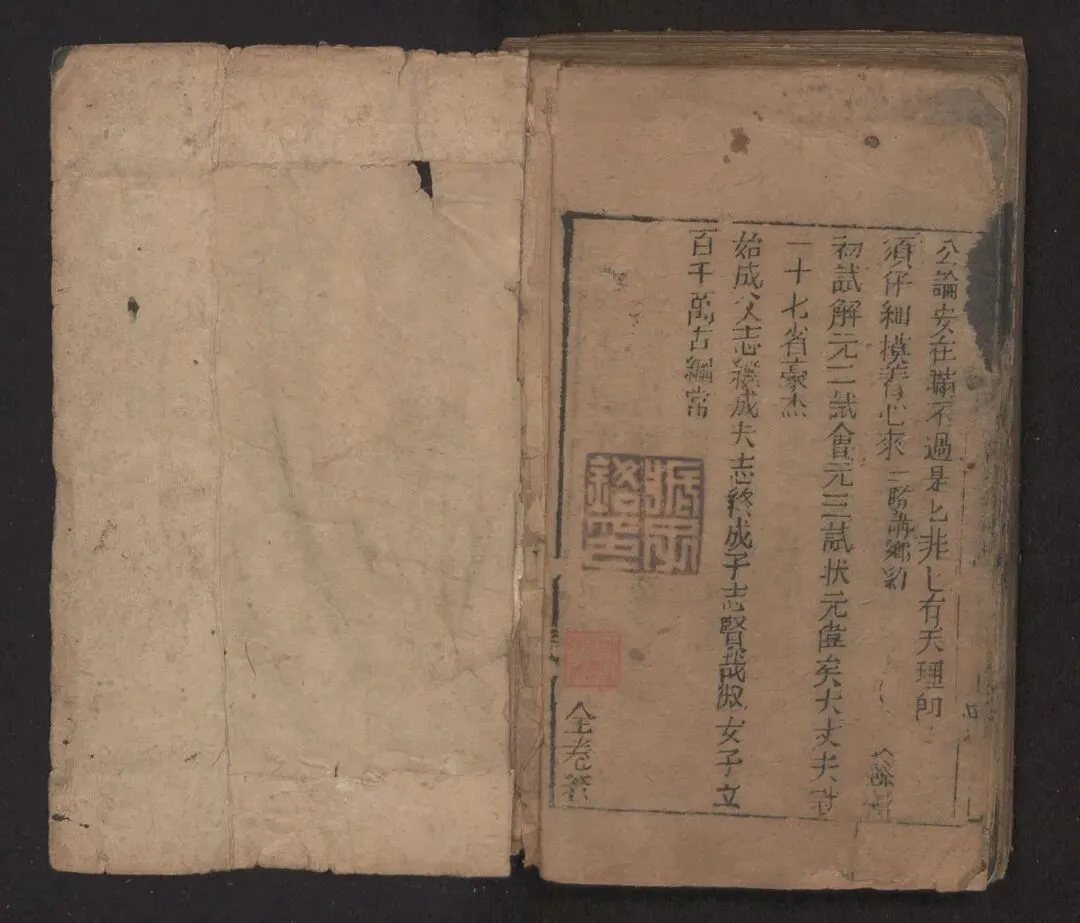 公論安在瞞不過是匕非匕有天理卽
須仔細摸着心來 講鄉約
初試解元二試會元三試狀元偉矣大丈夫
一十七省豪杰
始成父志繼成夫志終成子志賢哉淑女子立
百千萬古綱常
全卷终